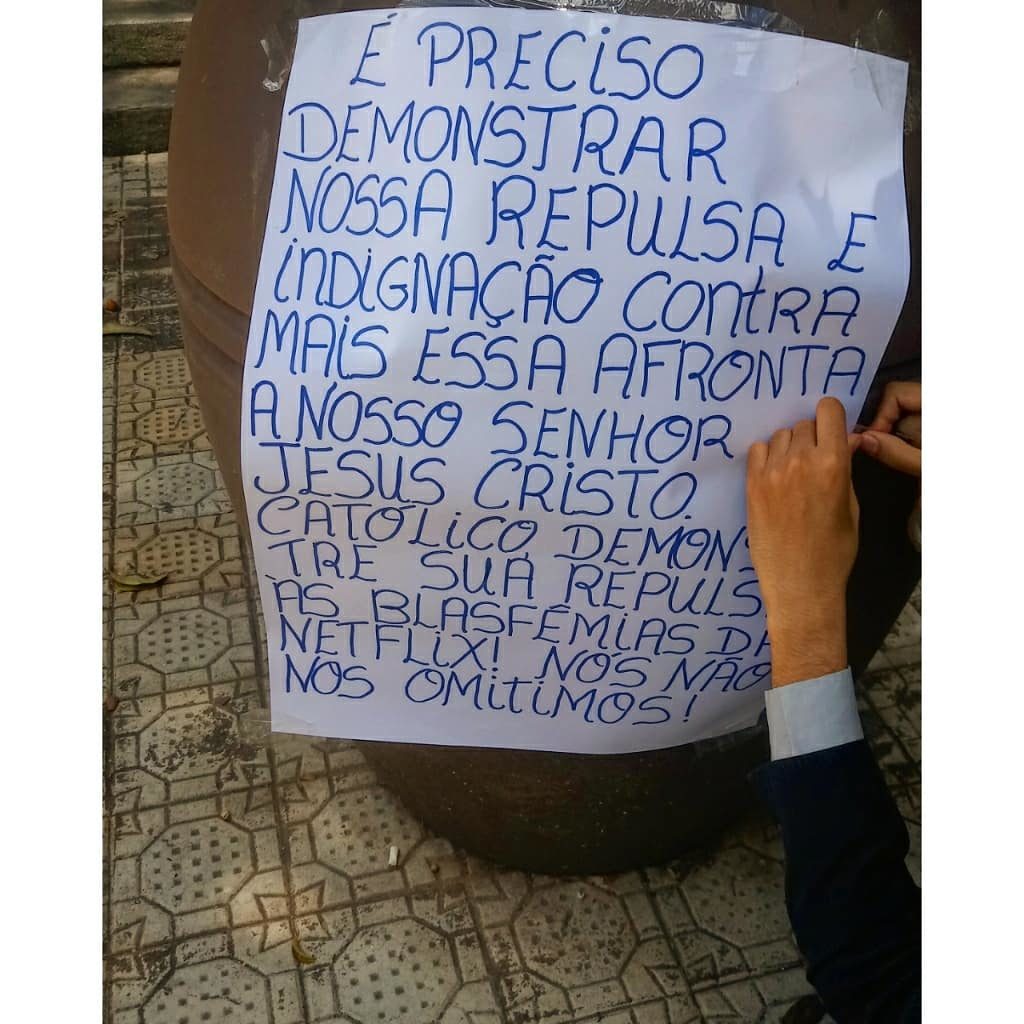 É PRECISO
DEMONSTRAR
NOSSA REPULSA E
INDIGNAÇÃO CONTRA
MAIS ESSA AFRONTA
A NOSSO SENHOR
JESUS CRISTO.
CATÓLICO DEMONS
TRE SUA REPULS
ÀS BLASFÊMIAS DA
NETFLIX! NÓS NÃO
NOS OMITIMOS!